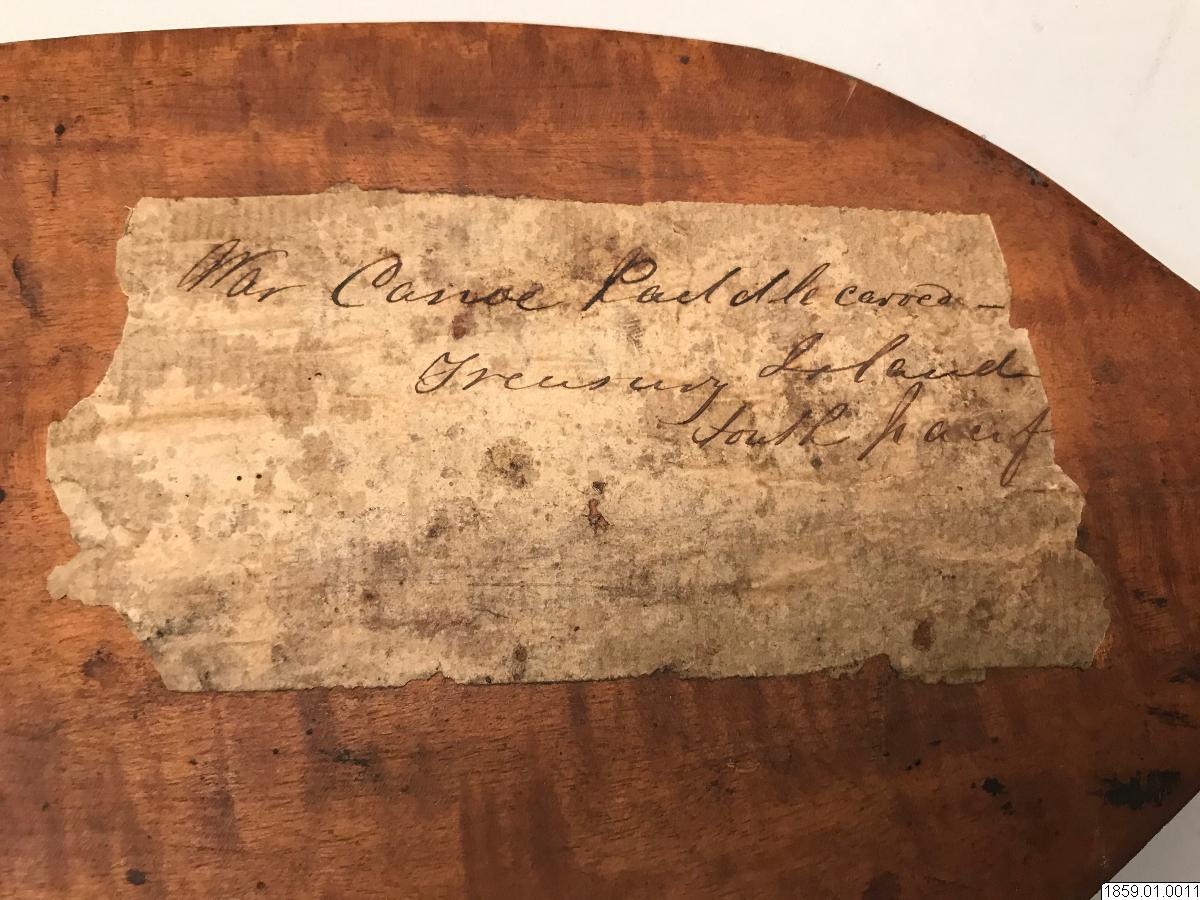 War Canoe Paddle carved –
Treasury Island
South Pacif
1859.01.0011